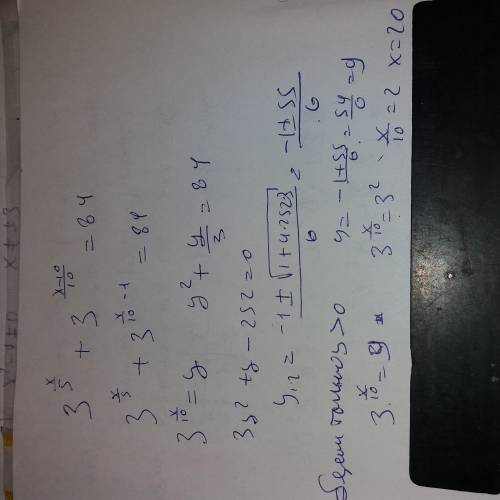 3^{x/5} + 3^{(x-10)/10} = 84
3^{x/5} + 3^{x/10 - 1} = 84
3^{x/10} = y   y² + y/3 = 84
3y² + y - 252 = 0
y₁,₂ = (-1 ± √(1+4·252·3))/6 = (-1 ± 55)/6
y > 0   y = (-1+55)/6 = 54/6 = 9
3^{x/10} = 9   3^{x/10} = 3²   x/10 = 2   x = 20